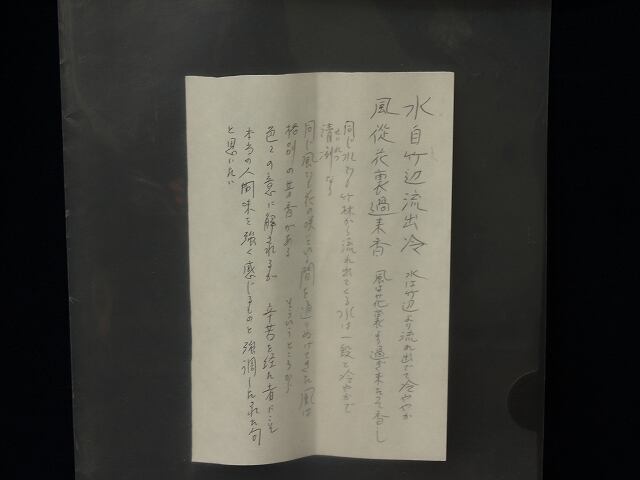 水自竹辺流出冷 水は竹辺より流れ出でて冷ややか
風従花裏過来香 風は花裏を過ぎ来たって香し
同じ水でも竹林から流れ出てくる水は一段と冷やかで
清冽 せいれつ なる
同じ風でも花の咲いている間を通りぬけてきた風は
格別の芳香がある そういうところから
色々の意に解されるが 辛苦を経た者に
本当の人間味を強く感じるものと強調したれた句
と思いたい